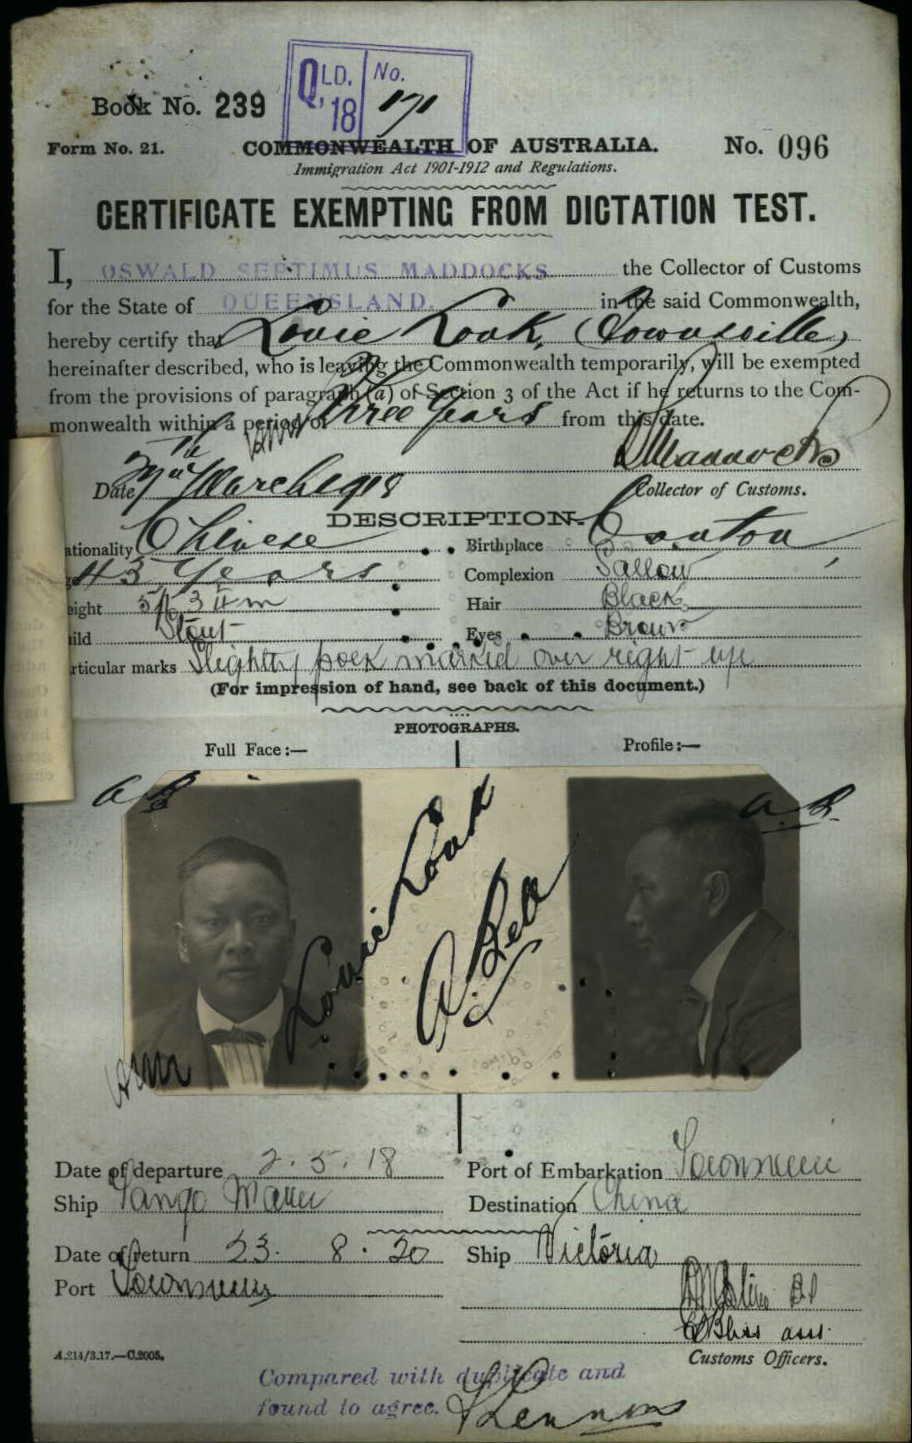 QLD. 18 No. 171
Book No. 239
Form No. 21. COMMONWEALTH OF AUSTRALIA. No. 096
Immigration Act 1901-1912 and Regulations.
CERTIFICATE EXEMPTING FROM DICTATION TEST.
I, OSWALD SEPTIMUS MADDOCKS the Collector of Customs
for the State of QUEENSLAND. in the said Commonwealth,
hereby certify that Louie Look, (Townsville)
hereinafter described, who is leaving the Commonwealth temporarily, will be exempted
from the provisions of paragraph (a) of Section 3 of the Act if he returns to the Com-
monwealth within a period of Three Years from this date.
Maddocks
Date March 1918 Collector of Customs.
DESCRIPTION.
ationality Chinese Birthplace Canton
43 Years Complexion Sallow
eight 5ft 3¼ in Hair Black
uild Stout Eyes Brown
rticular marks Slightly pock marked over right eye
(For impression of hand, see back of this document.)
PHOTOGRAPHS.
Full Face:— Profile:—
a B a. B.
Louie Look
A. Bell
Date of departure 2.5.18 Port of Embarkation Townsville
Ship Tango Maru Destination China
Date of return 23. 8. 20 Ship Victoria
Port Townsville
A.214/3.17.—C.2005. Customs Officers.
Compared with duplicate and
found to agree.